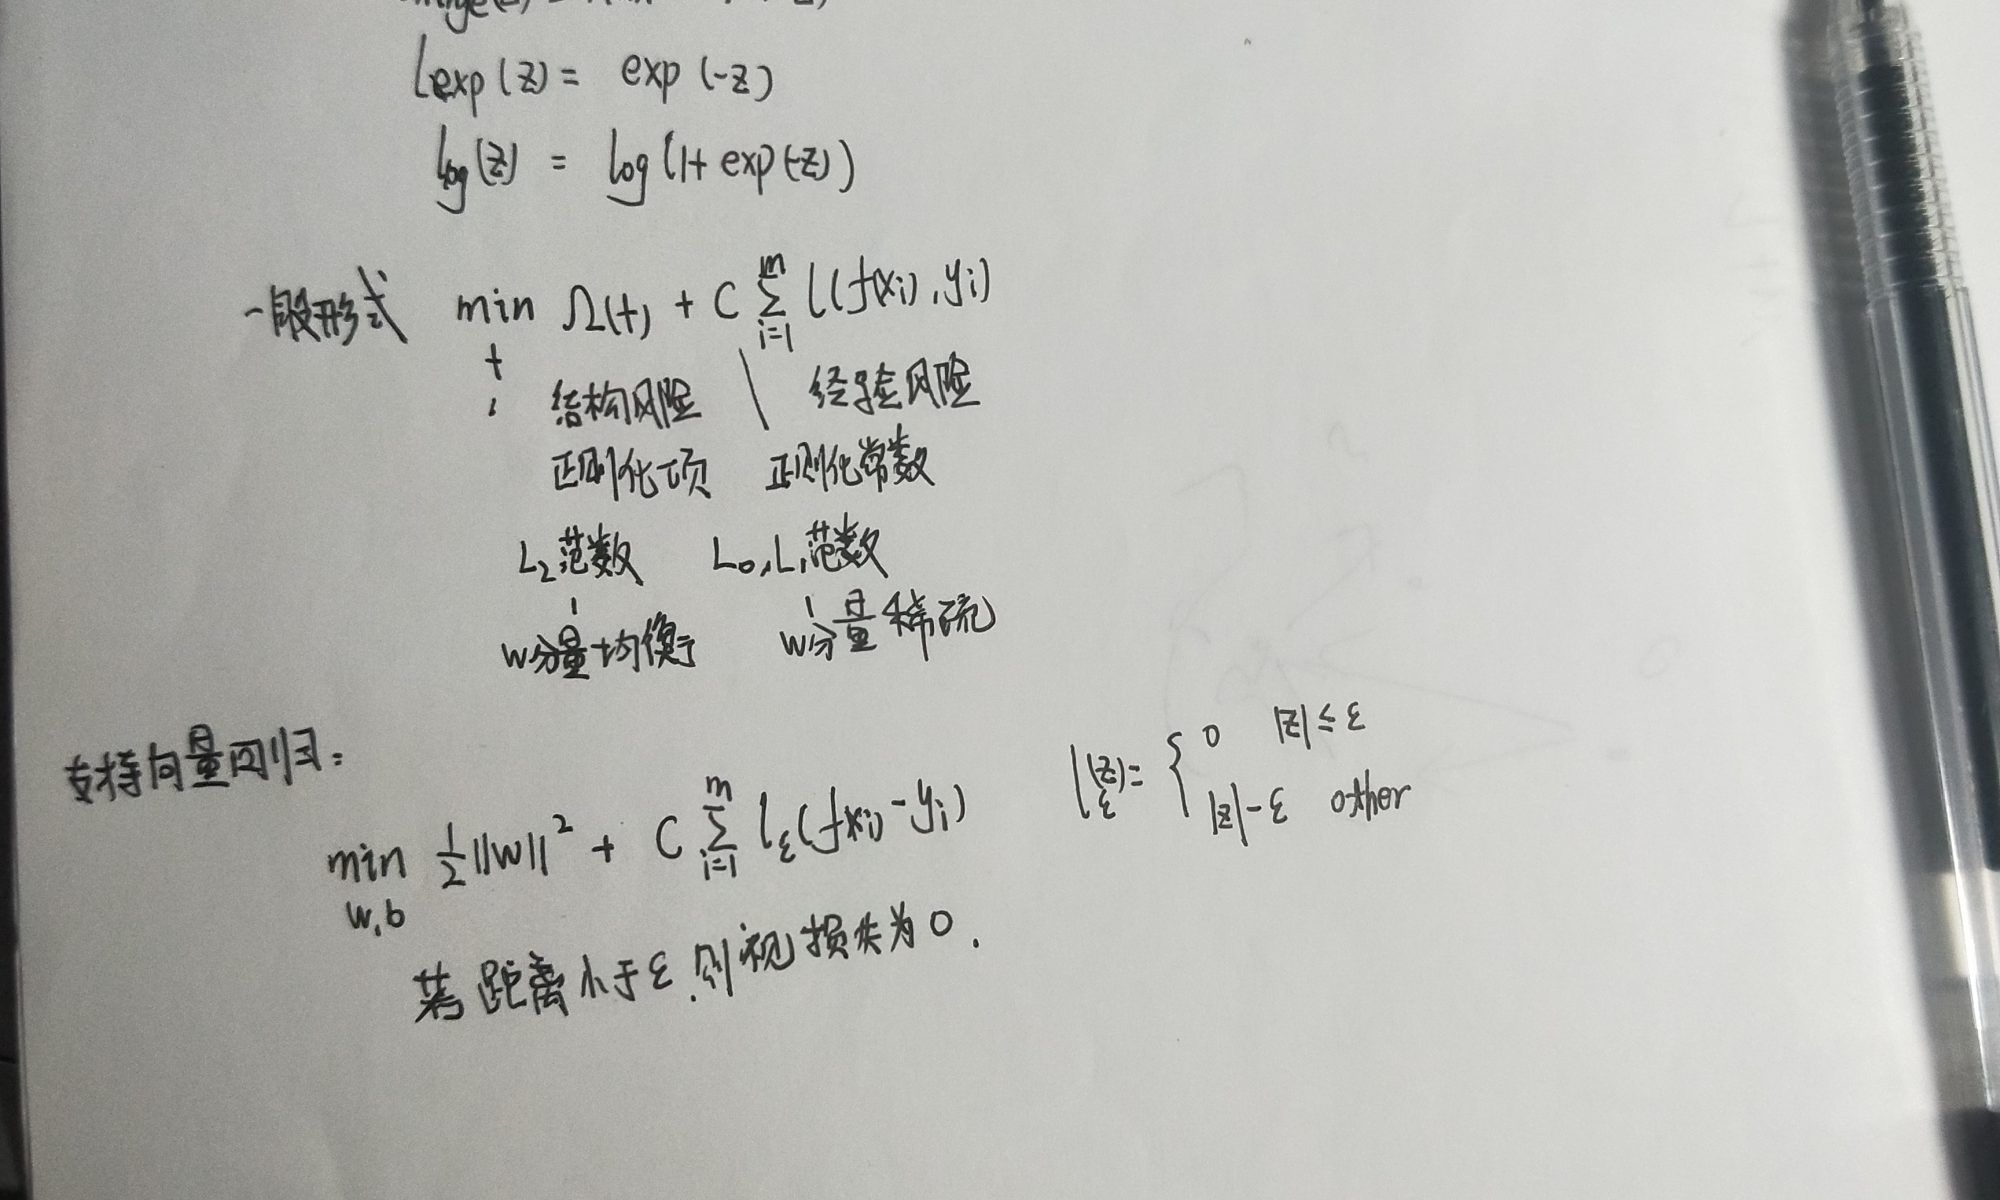 lexp(z) = exp(-z)
log(z) = log(1+exp(-z))
一般形式 min Ω(f) + C Σ l(f(xi), yi)
f i=1 m
结构风险 | 经验风险
正则化项 正则化常数
L₂范数 L₀,L₁范数
w分量均衡 w分量稀疏
支持向量回归:
min ½||w||² + C Σ lε(f(xi)-yi) lε(z)= { 0 |z|≤ε
w,b i=1 m |z|-ε other
若距离小于ε,则视损失为0.